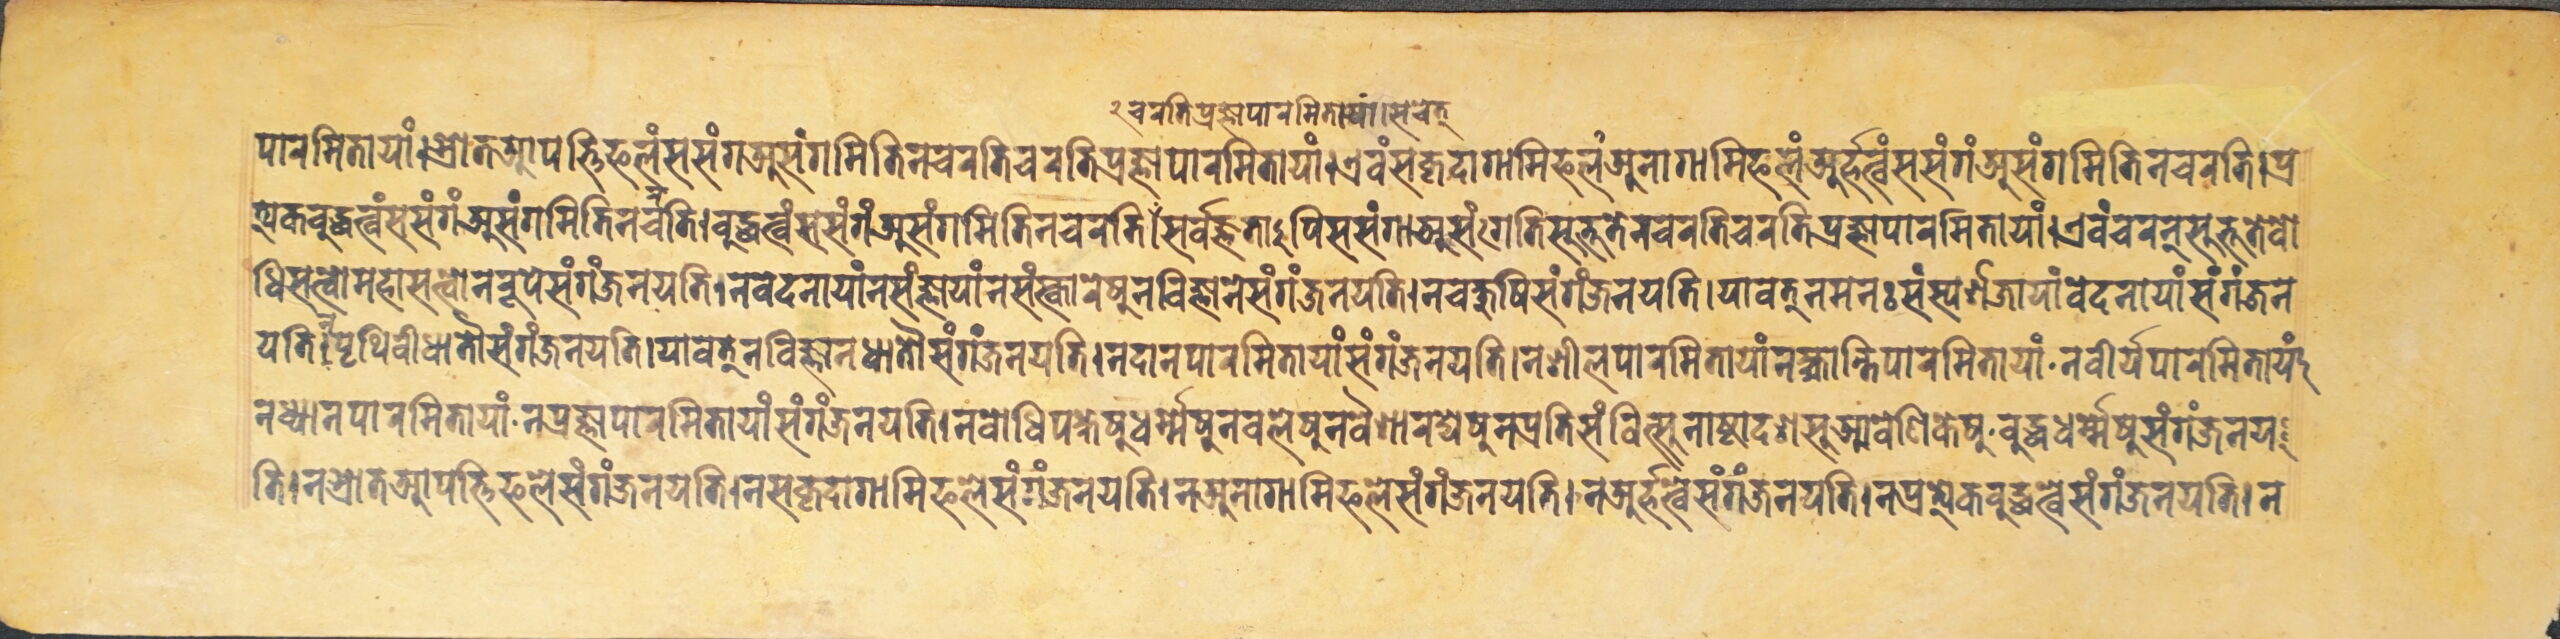 २चरतिप्रज्ञापारमितायां।सचेत्
पारमितायां।श्रोतआपत्तिफलंससंगअसंगमितिनचरतिचरतिप्रज्ञापारमितायां।एवंसकृदागामिफलंअनागामिफलंअर्हत्वंससंगंअसंगमितिनचरति।प्र
त्येकबुद्धत्वंससंगंअसंगमितिनचरति।बुद्धत्वंससंगंअसंगमितिनचरति।सर्वज्ञताऽपिससंगाअसंगेतिसुभूतेनचरतिचरतिप्रज्ञापारमितायां।एवंचरन्सुभूतेबो
धिसत्वोमहासत्वोनरूपेसंगंजनयति।नवेदनायांनसंज्ञायांनसंस्कारेषुनविज्ञानेसंगंजनयति।नचक्षुषिसंगंजनयति।यावत्नमनःसंस्पर्शजायांवेदनायांसंगंजन
यति।नपृथिवीधातौसंगंजनयति।यावत्नविज्ञानधातौसंगंजनयति।नदानपारमितायांसंगंजनयति।नशीलपारमितायांनक्षान्तिपारमितायां·नवीर्यपारमितायां
नध्यानपारमितायां·नप्रज्ञापारमितायांसंगंजनयति।नबोधिपक्षेषुधर्म्मेषुनबलेषुनवैशारद्येषुनप्रतिसंवित्सुनाष्टादशसुआवेणिकेषु·बुद्धधर्म्मेषुसंगंजनय
ति।नश्रोतआपत्तिफलेसंगंजनयति।नसकृदागामिफलेसंगंजनयति।नअनागामिफलेसंगंजनयति।नअर्हत्वेसंगंजनयति।नप्रत्येकबुद्धत्वेसंगंजनयति।न